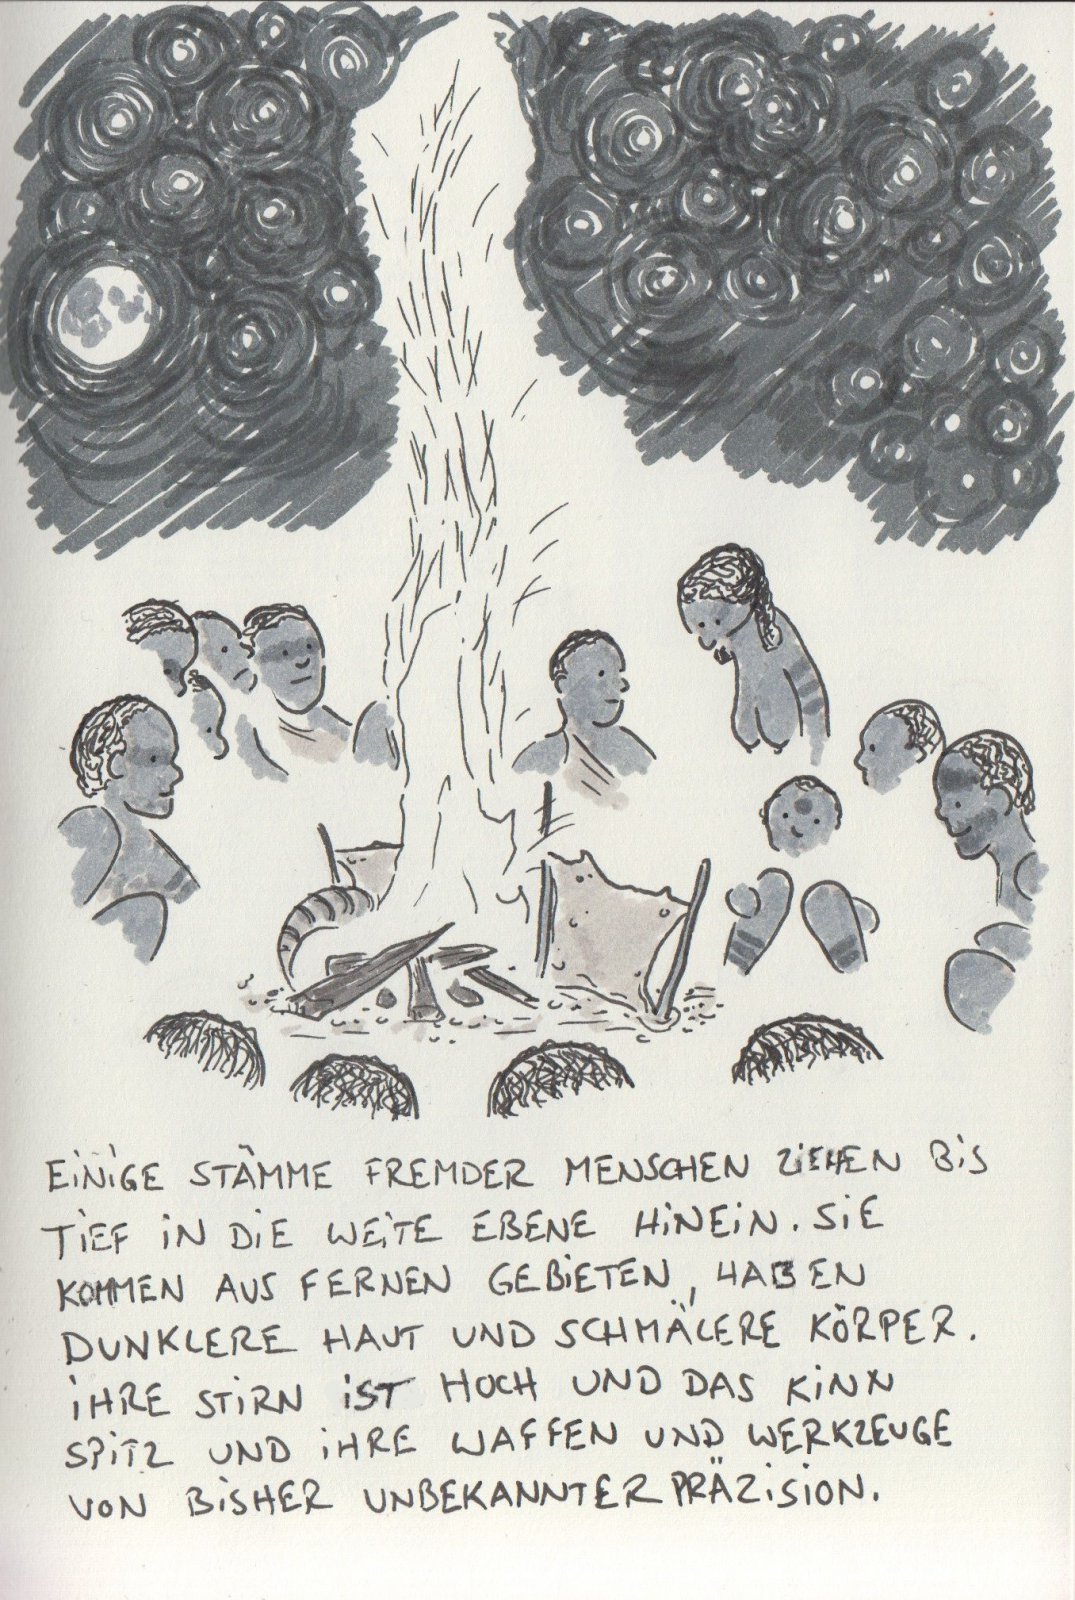 EINIGE STÄMME FREMDER MENSCHEN ZIEHEN BIS
TIEF IN DIE WEITE EBENE HINEIN. SIE
KOMMEN AUS FERNEN GEBIETEN, HABEN
DUNKLERE HAUT UND SCHMÄLERE KÖRPER.
IHRE STIRN IST HOCH UND DAS KINN
SPITZ UND IHRE WAFFEN UND WERKZEUGE
VON BISHER UNBEKANNTER PRÄZISION.